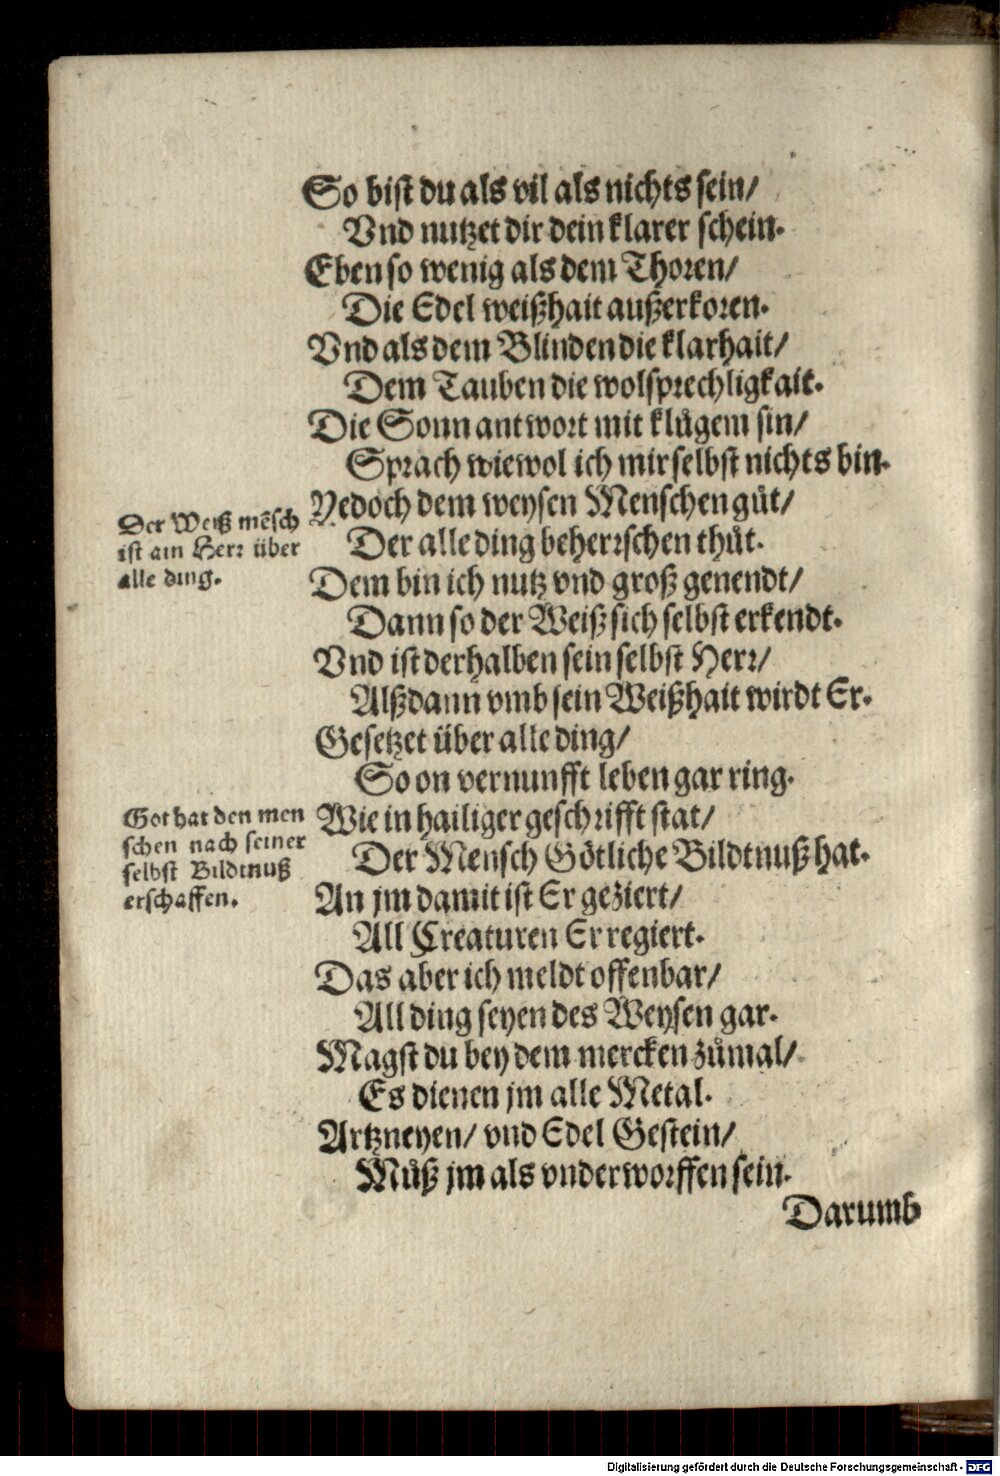 So bist du als vil als nichts sein/
Vnd nutzet dir dein klarer schein.
Eben so wenig als dem Thoren/
Die Edel weißhait außerkoren.
Vnd als dem Blinden die klarhait/
Dem Tauben die wolsprechligkait.
Die Sonn antwort mit klůgem sin/
Sprach wiewol ich mir selbst nichts bin.
Der Weiß mẽsch
ist ain Herr über
alle ding.
Yedoch dem weysen Menschen gůt/
Der alle ding beherrschen thůt.
Dem bin ich nutz vnd groß genendt/
Dann so der Weiß sich selbst erkendt.
Vnd ist derhalben sein selbst Herr/
Alßdann vmb sein Weißhait wirdt Er.
Gesetzet über alle ding/
So on vernunfft leben gar ring.
Got hat den men
schen nach seiner
selbst Bildtnuß
erschaffen.
Wie in hailiger geschrifft stat/
Der Mensch Götliche Bildtnuß hat.
An jm damit ist Er geziert/
All Creaturen Er regiert.
Das aber ich meldt offenbar/
All ding seyen des Weysen gar.
Magst du bey dem mercken zůmal/
Es dienen jm alle Metal.
Artzneyen/ vnd Edel Gestein/
Můß jm als vnderworffen sein.
Darumb
Digitalisierung gefördert durch die Deutsche Forschungsgemeinschaft - DFG